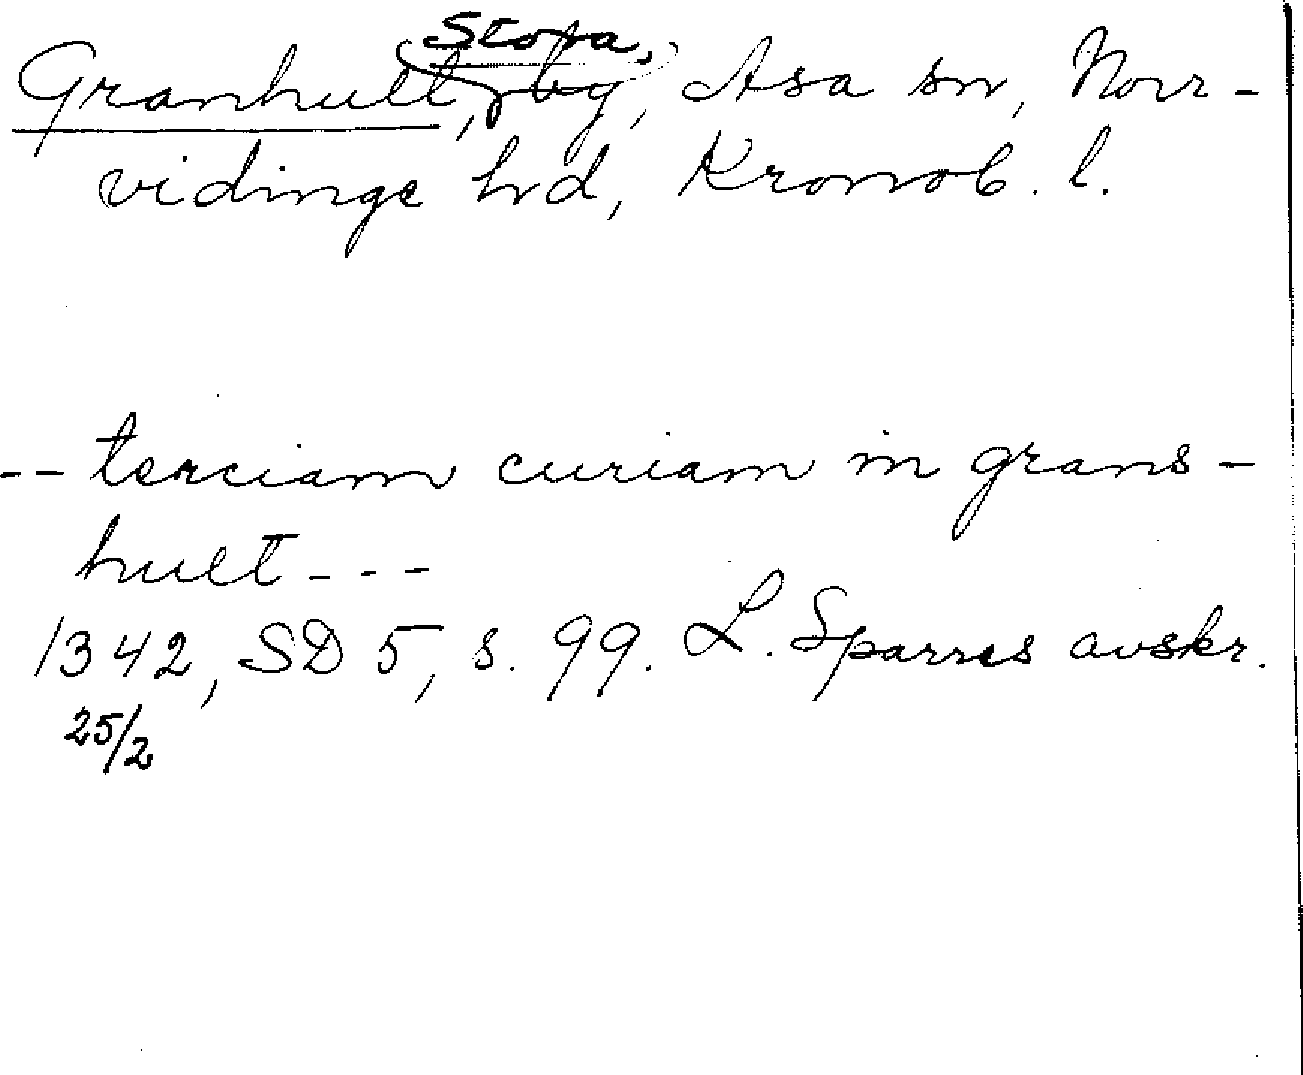 Granhult, Stora, by, Asa sn, Norr-
vidinge hd, Kronob. l.
-- terciam curiam in grans-
hult---
1342, SD 5, s. 99. L. Sparres avskr.
25/2